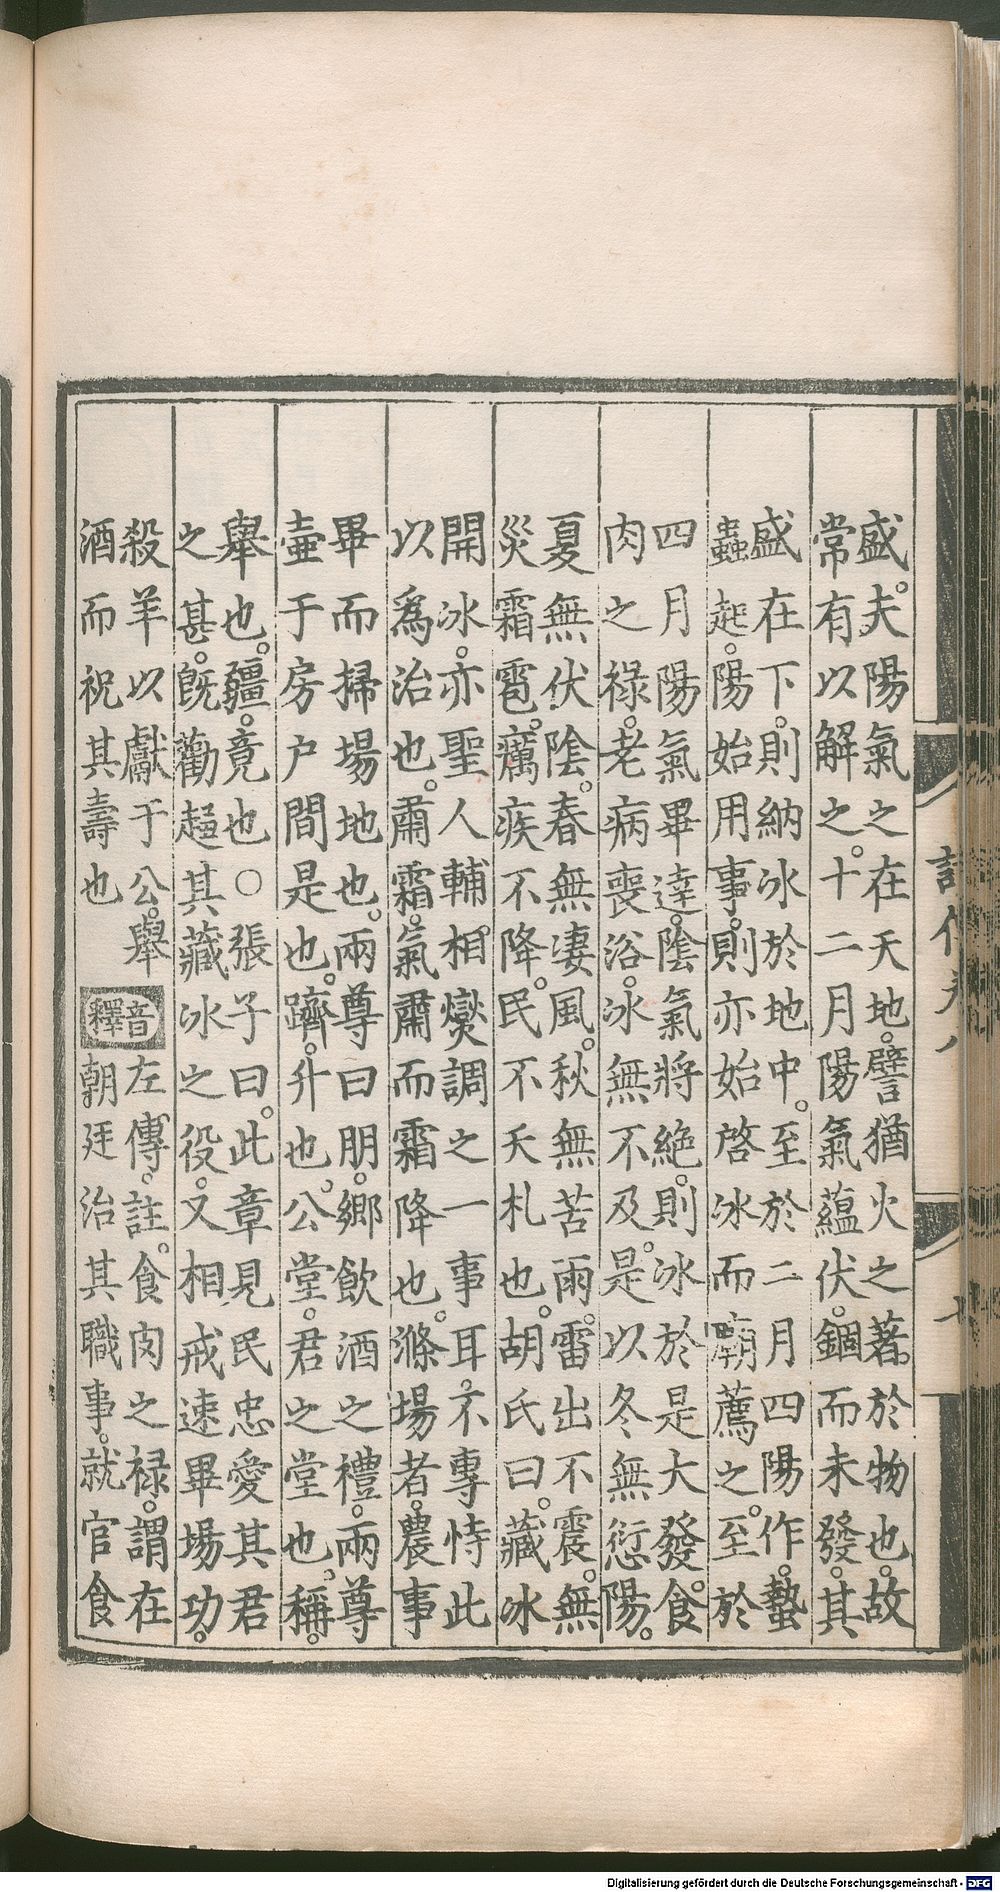 盛。夫陽氣之在天地。譬猶火之著於物也。故
常有以解之。十二月陽氣蘊伏。錮而未發。其
盛在下。則納冰於地中。至於二月四陽作。蟄
蟲起。陽始用事。則亦始啓冰而廟薦之。至於
四月陽氣畢達。陰氣將絶。則冰於是大發。食
肉之祿。老病喪浴。冰無不及。是以冬無愆陽。
夏無伏陰。春無凄風。秋無苦雨。雷出不震。無
災霜雹。癘疾不降。民不夭札也。胡氏曰。藏冰
開冰。亦聖人輔相。爕調之一事耳。不專恃此
以爲治也。肅霜。氣肅而霜降也。滌場者。農事
畢而掃場地也。兩尊曰朋。鄉飮酒之禮。兩尊
壷于房户間是也。躋。升也。公堂。君之堂也。稱。
舉也。疆。竟也○張子曰。此章見民忠愛其君
之甚。旣勸趨其藏冰之役。又相戒速畢場功。
殺羊以獻于公。舉
酒而祝其壽也
音釋
左傳。註。食肉之祿。謂在
朝廷治其職事。就官食
詩傳卷八
Digitalisierung gefördert durch die Deutsche Forschungsgemeinschaft - DFG